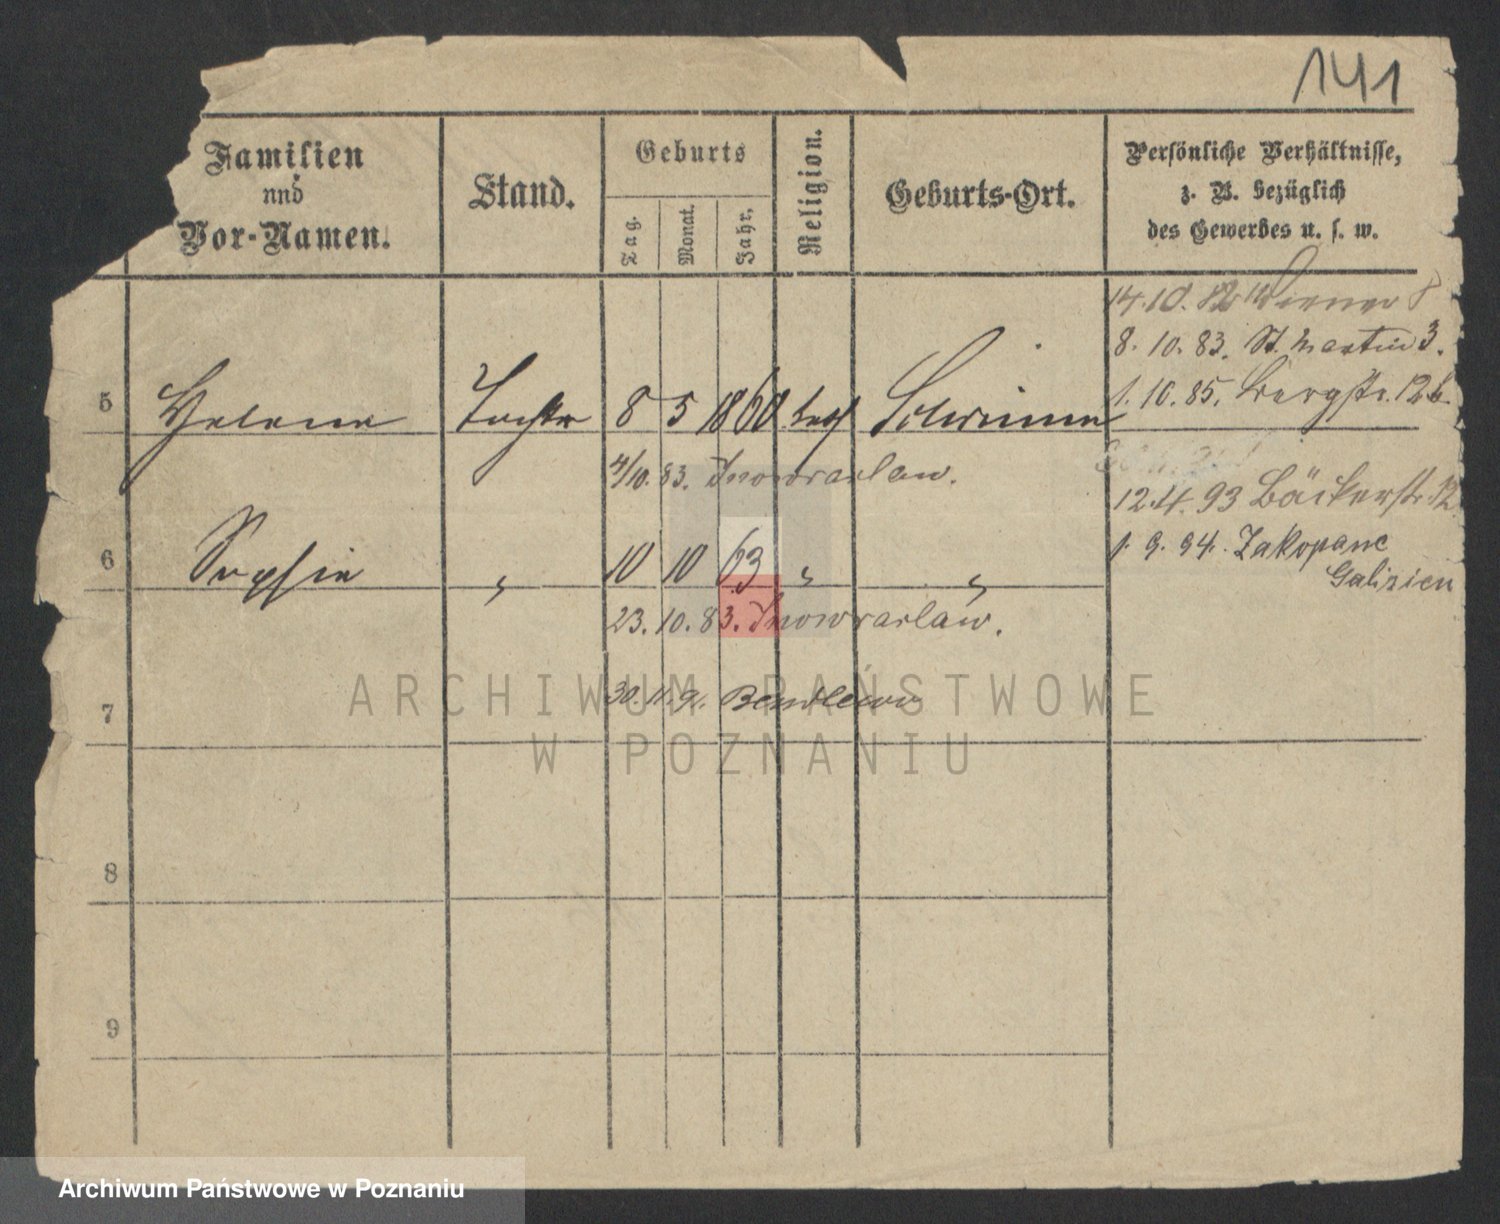 141
Familien
und
Vor-Namen.
Stand.
Geburts
Tag.
Monat.
Jahr.
Religion.
Geburts-Ort.
Persönliche Verhältnisse,
z. B. bezüglich
des Gewerbes u. s. w.
14.10.82 Wiener
8. 10. 83. St. Martin 3.
1. 10. 85. Bergstr. 12b.
5 Helene Tochter 8 5 1860 kath
4/10. 83. Inowraclaw.
12.4.93 Bäckerstr. 12
6 Sophie " 10 10 63 " "
1. 9. 94. Zakopane
Galizien
23. 10. 83. Inowraclaw.
7 30. 11. 91.
8
9
ARCHIWUM PAŃSTWOWE
W POZNANIU
Archiwum Państwowe w Poznaniu